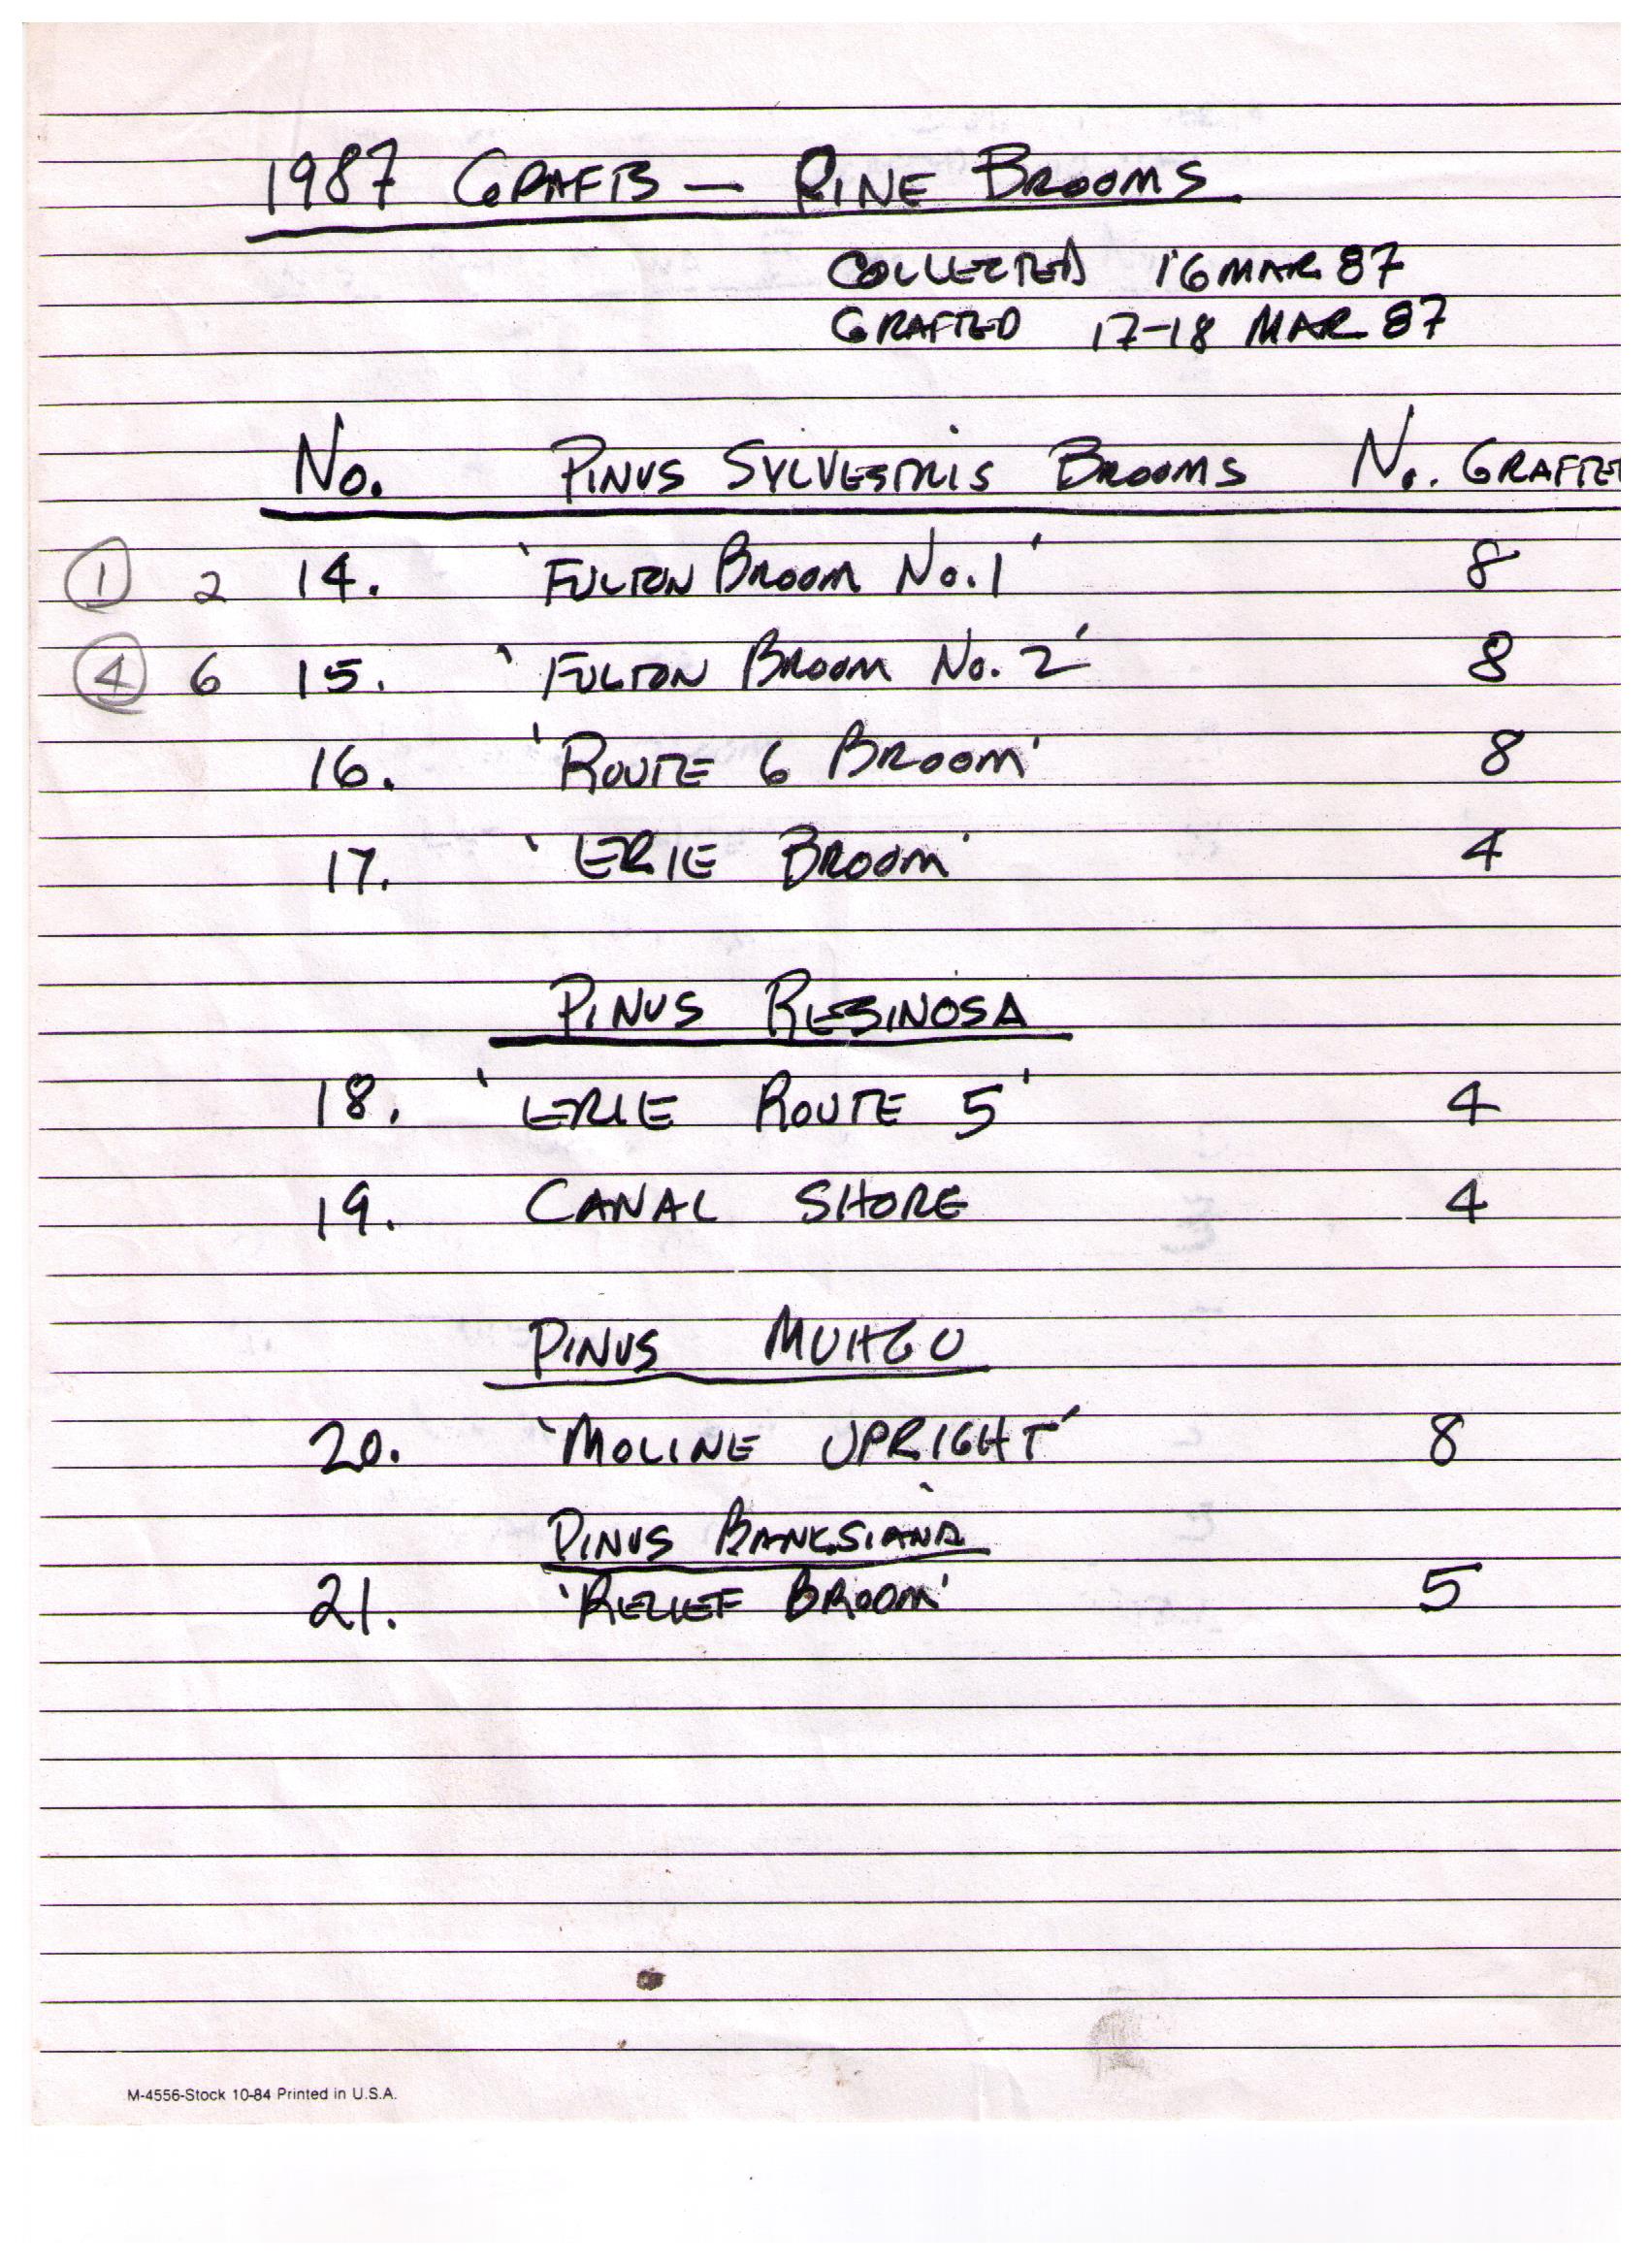 1987 GRAFTS — PINE BROOMS
COLLECTED 16 MAR 87
GRAFTED 17-18 MAR 87
No. PINUS SYLVESTRIS BROOMS No. GRAFTE
1 2 14. 'FULTON BROOM No. 1' 8
4 6 15. 'FULTON BROOM No. 2' 8
16. 'ROUTE 6 BROOM' 8
17. 'ERIE BROOM' 4
PINUS RESINOSA
18. 'ERIE ROUTE 5' 4
19. CANAL SHORE 4
PINUS MUHGO
20. 'MOLINE UPRIGHT' 8
PINUS BANKSIANA
21. 'RELIEF BROOM' 5
M-4556-Stock 10-84 Printed in U.S.A.